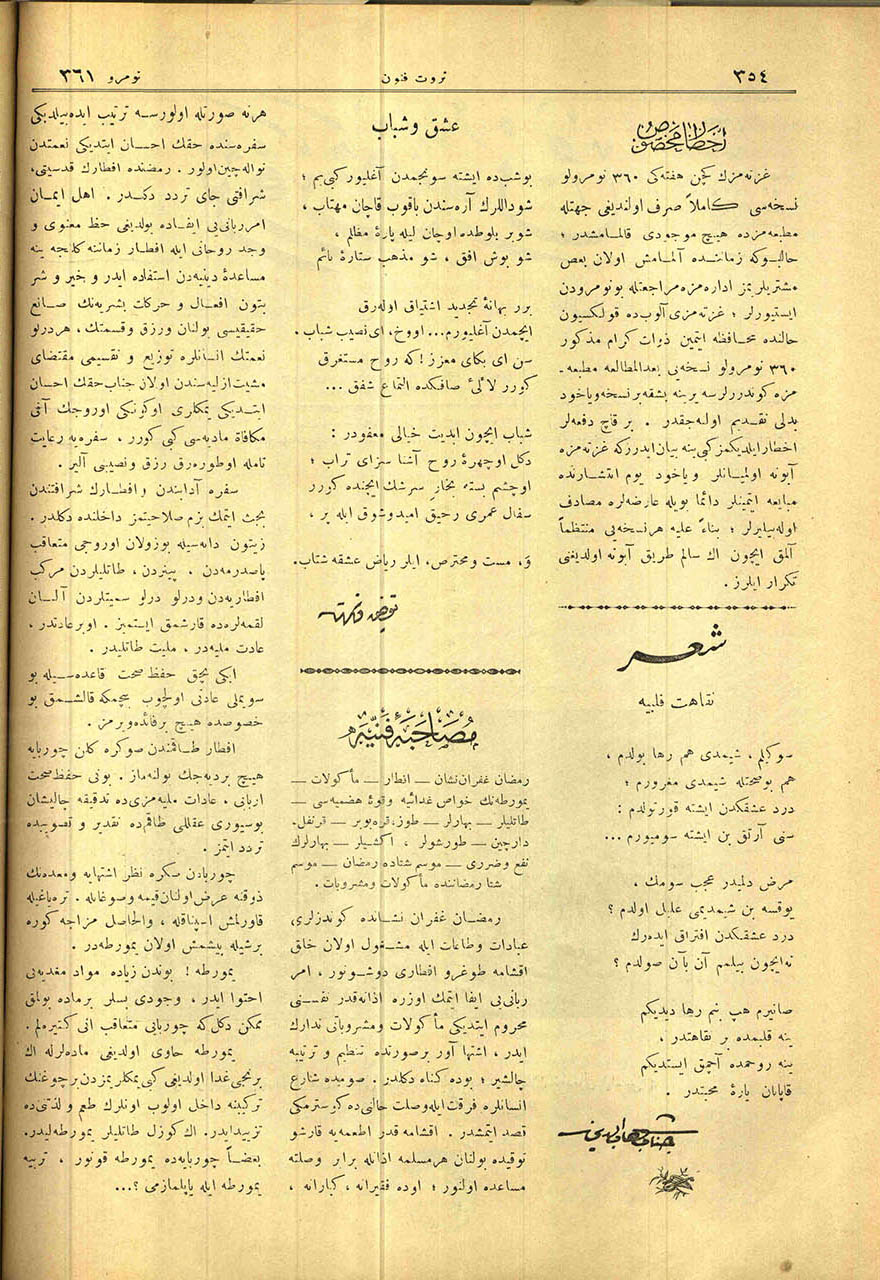 ٣٥٤
ثروت فنون
نومرو ٣٦١
اخطار مخصوص
غزته‌مزك كچن هفته‌كی ٣٦٠ نومرولو
نسخه‌سی كاملاً صرف اولندیغی جهتله
مطبعه‌مزده هیچ موجودی قالمامشدر ؛
حالبوكه زماننده آلمامش اولان بعض
مشتریلریمز اداره‌مزه مراجعتله بونومرودن
ایستیورلر ؛ غزته‌مزی آلوب‌ده قولكسیون
حالنده محافظه ایتمین ذوات كرام مذكور
٣٦٠ نومرولو نسخه‌یی بعدالمطالعه مطبعه‌ـ
مزه كوندررلرسه یرینه بشقه بر نسخه ویاخود
بدلی تقدیم اوله‌جقدر . بر قاچ دفعه‌لر
اخطار ایلدیكمز كبی ینه بیان ایدرزكه غزته‌مزه
آبونه اولمیانلر ویاخود یوم انتشارنده
مبایعه ایتمینلر دائما بویله عارضه‌لره مصادف
اوله‌بیلیرلر ؛ بناءً علیه هر نسخه‌یی منتظماً
آلمق ایچون اك سالم طریق آبونه اولدیغنی
تكرار ایلرز .
شعر
نقاهت قلبیه
سوكیلم ، شیمدی هم رها بولدم ،
هم بوصحتله شیمدی مغرورم ؛
درد عشقكدن ایشته قورتولدم :
سنی آرتق بن ایشته سومیورم ...
مرض دلمیدر عجب سومك ،
یوقسه بن شیمدیمی علیل اولدم ؟
درد عشقكدن افتراق ایده‌رك
نه‌ایچون بیلمم آن بآن صولدم ؟
صانیرم هپ بنم رها دیدیكم
ینه قلبمده بر نقاهتدر ،
ینه روحمده آچمق ایستدیكم
قاپانان یارهٔ محبتدر .
جناب شهاب‌الدین
عشق و شباب
بوشب‌ده ایشته سونجمدن آغلیور كبی‌یم ؛
شو داللرك آره‌سندن باقوب قاچان مهتاب ،
شو بر بلوطده اوچان لیله پارهٔ مظلم ،
شو بوش افق ، شو مذهب ستارهٔ نائم
برر بهانهٔ تجدید اشتیاق اوله‌رق
ایچمدن آغلیورم... اووخ، ای نصیب شباب .
سن ای بكای معزز ! كه روح مستغرق
كورر لآلئ صافكده التماع شفق ...
شباب ایچون ابدیت خیالی معفودر :
دكل اوچهرهٔ روح آشنا سزای تراب ؛
اوچشم بستهٔ بخار سرشك ایچنده كورر
سفال عمری رحیق امید و شوق ایله پر ،
و، مست ومحترص، ایلر ریاض عشقه شتاب.
توفیق فكرت
مصاحبهٔ فنیه
رمضان غفران‌نشان — افطار — مأكولات —
یمورطه‌نك خواص غدائیه وقوهٔ هضمیه‌سی —
طاتلیلر — بهارلر — طوز، قره‌بوبر — قرنفل.
دارچین — طورشولر ، اكشیلر — بهارلرك
نفع وضرری — موسم شتاده رمضان — موسم
شتا رمضاننده مأكولات ومشروبات .
رمضان غفران نشانده كوندزلری
عبادات وطاعات ایله مشغول اولان خلق
اقشامه طوغرو افطاری دوشونور ، امر
ربانی‌یی ایفا ایتمك اوزره اذانه‌قدر نفسنی
محروم ایتدیكی مأكولات ومشروباتی تدارك
ایدر ، اشتها آور بر صورتده تنظیم و ترتیبه
چالشیر ؛ بوده كناه دكلدر . صومیده شارع
انسانلره فرقت ایله وصلت حالنی‌ده كوسترمكی
قصد ایتمشدر . اقشامه قدر اطعمه‌یه قارشو
توقیده بولنان هر مسلمه اذانله برابر وصلته
مساعده اولنور ؛ اوده فقیرانه ، كبارانه ،
هرنه صورتله اولورسه ترتیب ایده‌بیلدیكی
سفره‌سنده حقك احسان ایتدیكی نعمتدن
نواله‌چین اولور . رمضنده افطارك قدسیتی،
شرافتی جای تردد دكلدر . اهل ایمان
امر ربانی‌یی ایفاده بولدیغی حظ معنوی و
وجد روحانی ایله افطار زماننه كلنجه ینه
مساعدهٔ دینیه‌دن استفاده ایدر و خیر و شر
بتون افعال و حركات بشریه‌نك صانع
حقیقیسی بولنان ورزق وقسمتك ، هر درلو
نعمتك انسانلره توزیع و تقسیمی مقتضای
مشیت ازلیه‌سندن اولان جناب حقك احسان
ایتدیكی یمكلری اوكونكی اوروجك آنی
مكافاة مادیه‌سی كبی كورر ، سفره‌یه رعایت
تامله اوطوره‌رق رزق ونصیبنی آلیر .
سفره آدابندن وافطارك شرافتندن
بحث ایتمك بزم صلاحیتمز داخلنده دكلدر.
زیتون دانه‌سیله بوزولان اوروجی متعاقب
پاصدرمه‌دن . پینردن ، طاتلیلردن مركب
افطاریه‌دن ودرلو درلو سمیتلردن آلنان
لقمه‌لرده قارشمق ایستمیز . اوبر عادتدر ،
عادت ملیه‌در ، ملیت طاتلیدر.
ایكی بچق حفظ صحت قاعده‌سیله بو
سویملی عادتی اولچوب بیچمكه قالشمق بو
خصوصده هیچ بر فائده ویرمز .
افطار طاقمندن صوكره كلان چوربایه
هیچ بر دیه‌جك بولنه‌ماز . بونی حفظ صحت
اربابی ، عادات ملیه‌مزی‌ده تدقیقه چالیشان
بوسیوری عقللی طاقم‌ده تقدیر و تصویبده
تردد ایتمز .
چوربادن صكره نظر اشتهایه ومعده‌نك
ذوقنه عرض اولنان قیمه وصوغانله . تره‌یاغیله
قاورلمش اسپناقله ، والحاصل مزاجه كوره
برشیله پیشمش اولان یمورطه‌در .
یمورطه ! بوندن زیاده مواد مغدیه‌یی
احتوا ایدر ، وجودی بسلر برماده بولمق
ممكن دكل كه چوربایی متعاقب آنی كتیره‌لم .
یمورطه حاوی اولدیغی ماده‌لرله اك
برنجی غدا اولدیغی كبی یمكلریمزدن برچوغنك
تركیبنه داخل اولوب اونلرك طعم و لذتنی‌ده
تزیید ایدر . اك كوزل طاتلیلر یمورطه‌لیدر.
بعضاً چوربایه‌ده یمورطه قونور ، تربیه
یمورطه ایله یاپیلمازمی ؟...